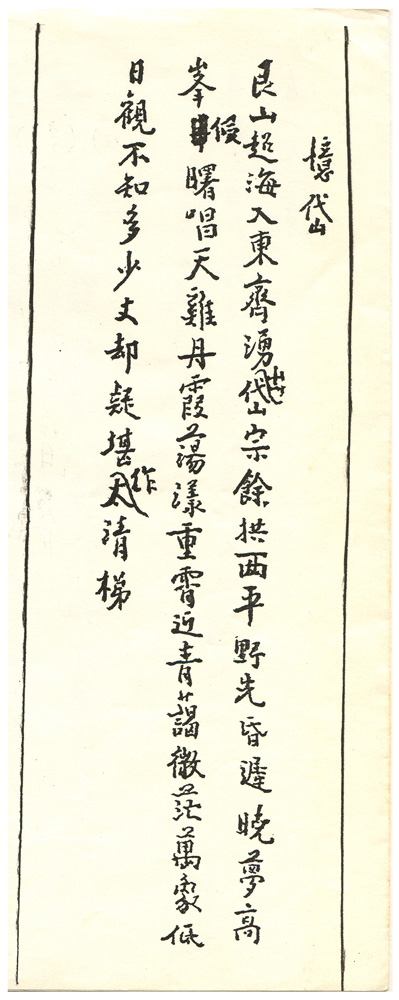 憶岱
艮山超海入東齊湧出岱宗餘拱西平野先昏遲曉夢高
峯候曙唱天雞丹霞蕩漾重霄近青藹微茫萬象低
日觀不知多少丈却疑堪作太清梯